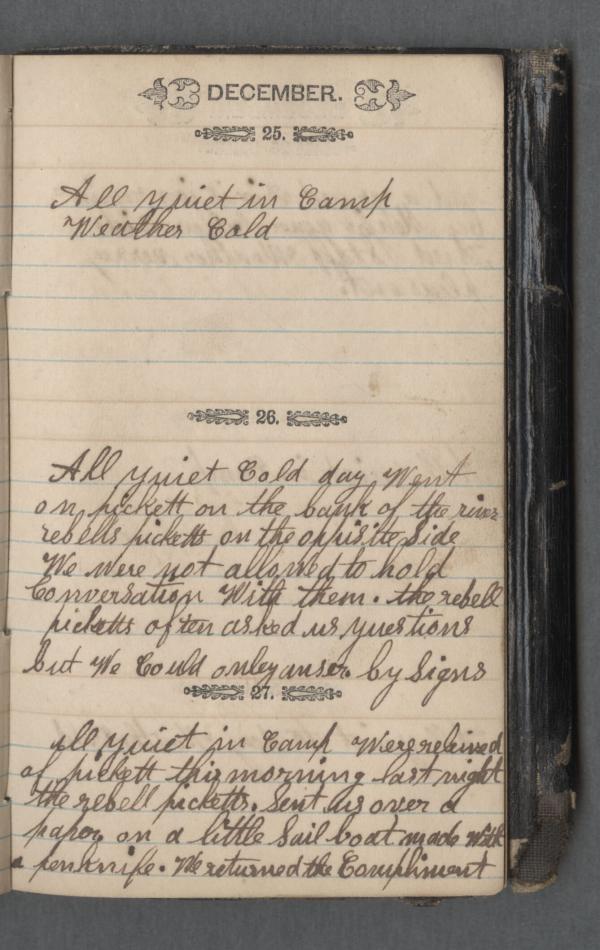 DECEMBER.
25.
All quiet in Camp
Weather Cold
26.
All quiet Cold day Went
on pickett on the bank of the river
rebells picketts on the opisite Side
We were not allowed to hold
Conversation With them. the rebell
picketts often asked us questions
but We Could onley anser by Signs
27.
All quiet in Camp Were releived
of pickett this morning last night
the rebell picketts. Sent us over a
paper on a little Sail boat made With
a penknife. We returned the Compliment